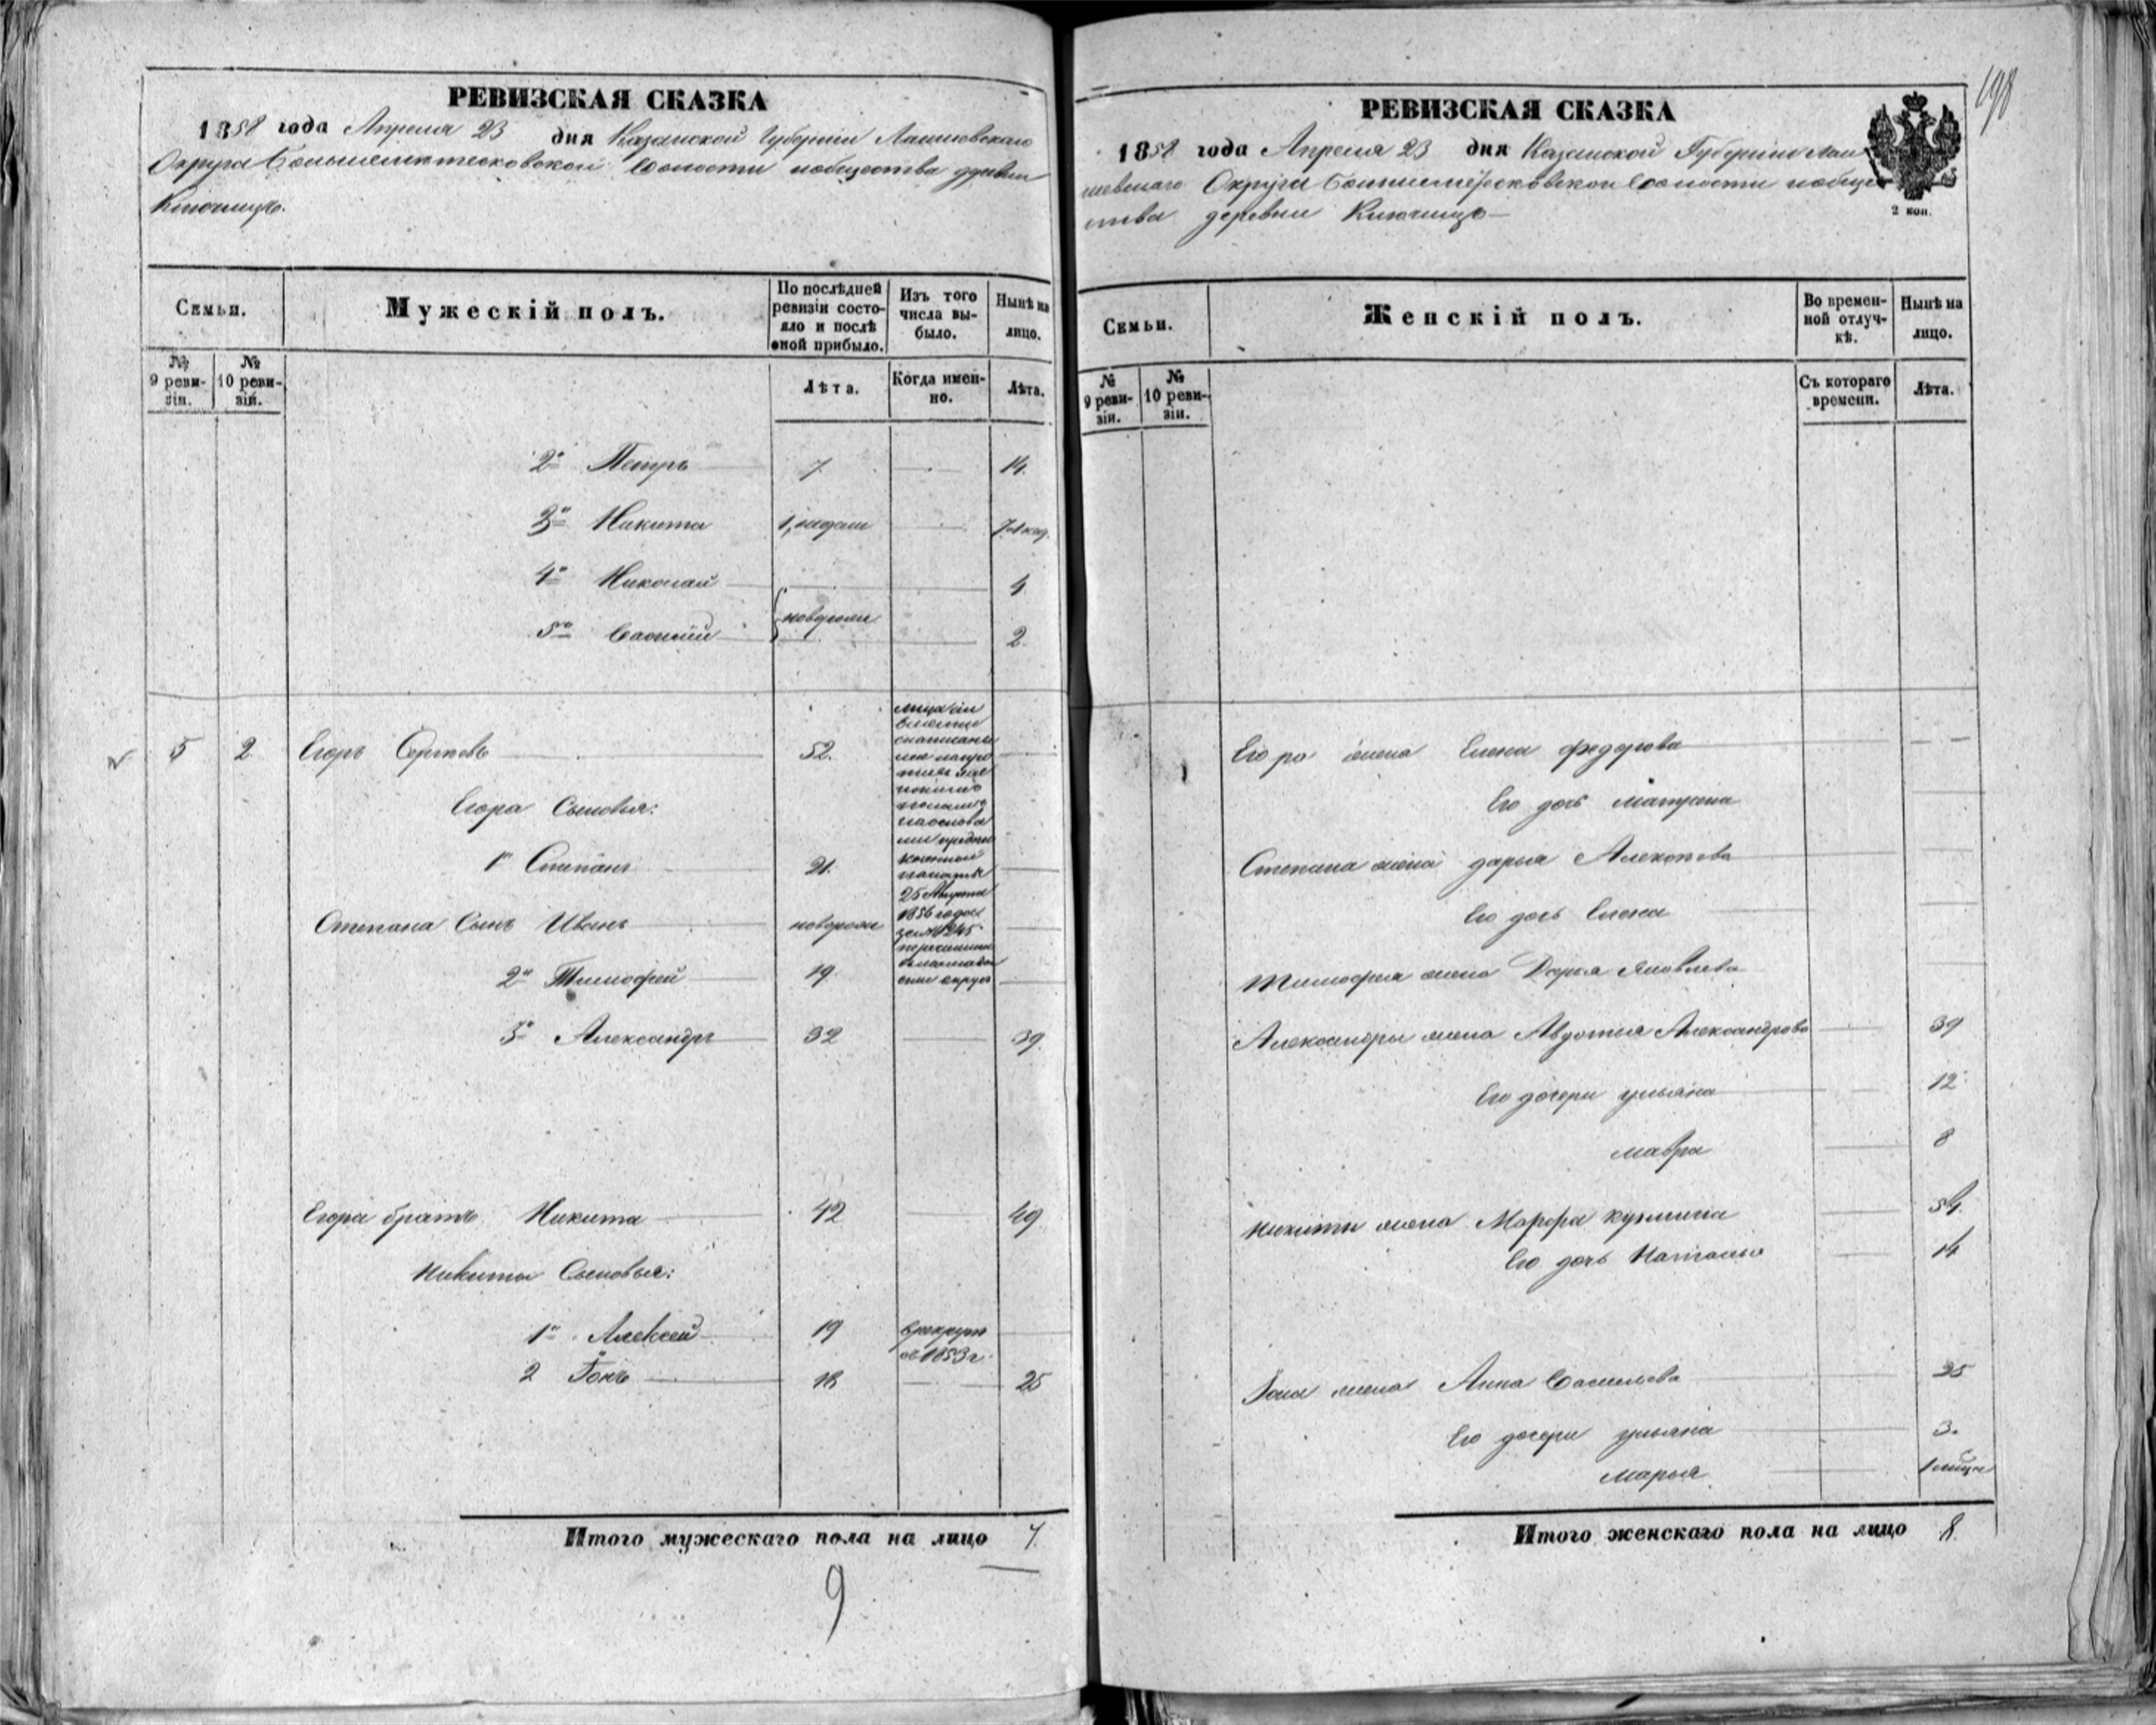 РЕВИЗСКАЯ СКАЗКА
1858 года Апреля 23 дня Казанской Губернiи Лаишевскаго
Округа Волости и общества деревни
Ключищъ.
Семьи.
Мужескiй полъ.
По послѣдней ревизiи состояло и послѣ оной прибыло.
Изъ того числа выбыло.
Нынѣ на лицо.
№ 9 ревизiи.
№ 10 ревизiй.
Лѣта.
Когда именно.
Лѣта.
2й Петръ 7. 14.
3й Никита 1 недели
4й Николай 4
новорож
5й Василiй 2.
5 2 Егоръ Сергѣевъ 52.
Егора Сыновья:
1й Степанъ 21.
25 Августа
1856 года
Степана Сынъ Иванъ новорож
2й Тимофей 19.
3й Александръ 32 39.
Егора братъ Никита 42 49
Никиты Сыновья:
1й Алексей 19 в рекруты
въ 1853 г.
2 Iонъ 18 25
Итого мужескаго пола на лицо 7.
9
198
РЕВИЗСКАЯ СКАЗКА
1858 года Апреля 23 дня Казанской Губернiи Лаи
шевскаго Округа Волости и общес
тва деревни Ключищъ
2 коп.
Семьи.
Женскiй полъ.
Во временной отлучкѣ.
Нынѣ на лицо.
№ 9 ревизiи.
№ 10 ревизiи.
Съ котораго времени.
Лѣта.
Егора жена Елена федорова
Его дочь матрена
Степана жена дарья Алексѣева
Его дочь Елена
Тимофея жена Дарья Яковлева
Александры жена Авдотья Александрова 39
Его дочери ульяна 12
мавра 8
Никиты жена Марфа кузмина 54.
Его дочь Наталья 14
Iона жена Анна Васильева 25
Его дочери ульяна 3.
Марья 1 мѣсц
Итого женскаго пола на лицо 8.